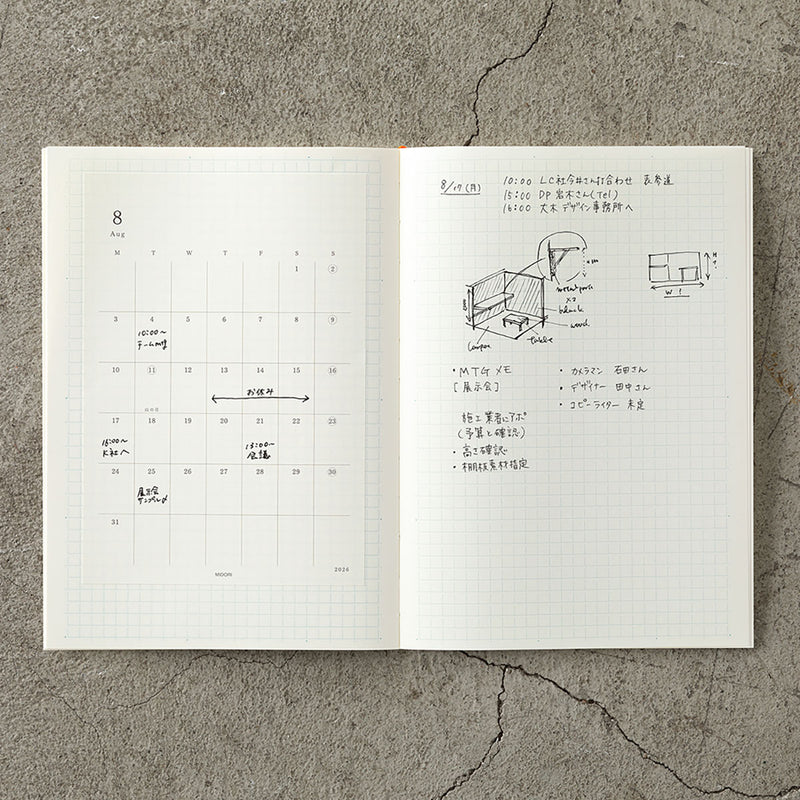 8
Aug
M T W T F S S
1 2
3 4 5 6 7 8 9
10:00〜
チームMTG
10 11 12 13 14 15 16
山の日
お休み
17 18 19 20 21 22 23
16:00〜
K社へ
13:00〜
会議
24 25 26 27 28 29 30
展示会
サンプル〆
31
MIDORI
2026
8/17(月)
10:00 LC社今井さん打合わせ 表参道
15:00 DP 岩木さん(Tel)
16:00 大木デザイン事務所へ
metal
x2
black
wood
table
H?
W?
・MTGメモ
[展示会]
施工業者にアポ
(予算と確認)
・高さ確認
・棚板素材指定
・カメラマン 石田さん
・デザイナー 田中さん
・コピーライター 未定